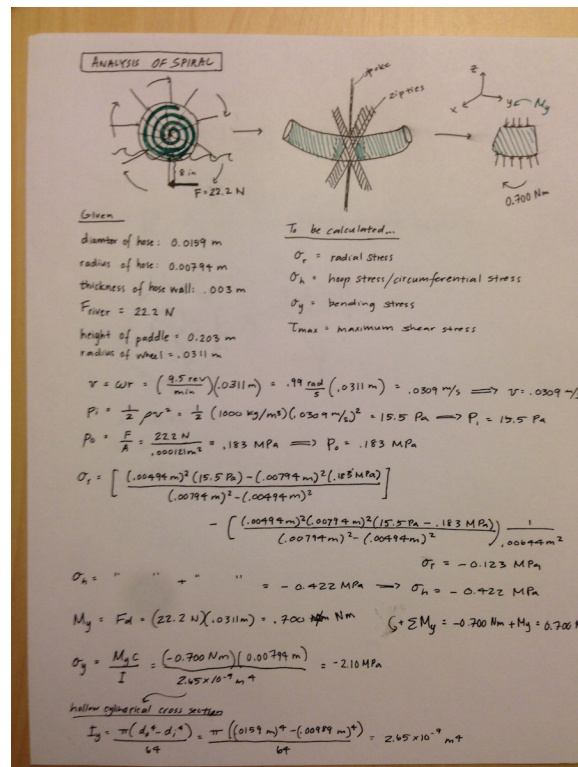 ANALYSIS OF SPIRAL
spoke
zipties
z
x
y
My
8 in
F=22.2 N
0.700 Nm
Given
diamter of hose: 0.0159 m
radius of hose: 0.00794 m
thickness of hose wall: .003 m
Friver = 22.2 N
height of paddle = 0.203 m
radius of wheel = .0311 m
To be calculated...
σr = radial stress
σh = hoop stress/circumferential stress
σy = bending stress
τmax = maximum shear stress
v = ωr = (9.5 rev/min)(.0311m) = .99 rad/s (.0311 m) = .0309 m/s ⟹ v = .0309 m/s
Pi = 1/2 ρv² = 1/2 (1000 kg/m³)(.0309 m/s)² = 15.5 Pa ⟹ Pi = 15.5 Pa
Po = F/A = 22.2 N/.000121m² = .183 MPa ⟹ Po = .183 MPa
σr = [(.00494m)²(15.5 Pa) - (.00794 m)²(.183 MPa)/(.00794 m)² - (.00494 m)²]
- [((.00494m)²(.00794 m)²(15.5 Pa - .183 MPa)/(.00794 m)² - (.00494m)²) 1/.00644m²
σr = -0.123 MPa
σh = " " + " " = -0.422 MPa ⟶ σh = -0.422 MPa
My = Fd = (22.2 N)(.0311m) = .700 Nm
↺+ΣMy = -0.700 Nm + My = 0.700 N
σy = My c/I = (-0.700 Nm)(0.00794 m)/2.65×10⁻⁹ m⁴ = -2.10 MPa
hollow cylindrical cross section
Iy = π(do⁴ - di⁴)/64 = π((.0159 m)⁴ - (.00989 m)⁴)/64 = 2.65×10⁻⁹ m⁴